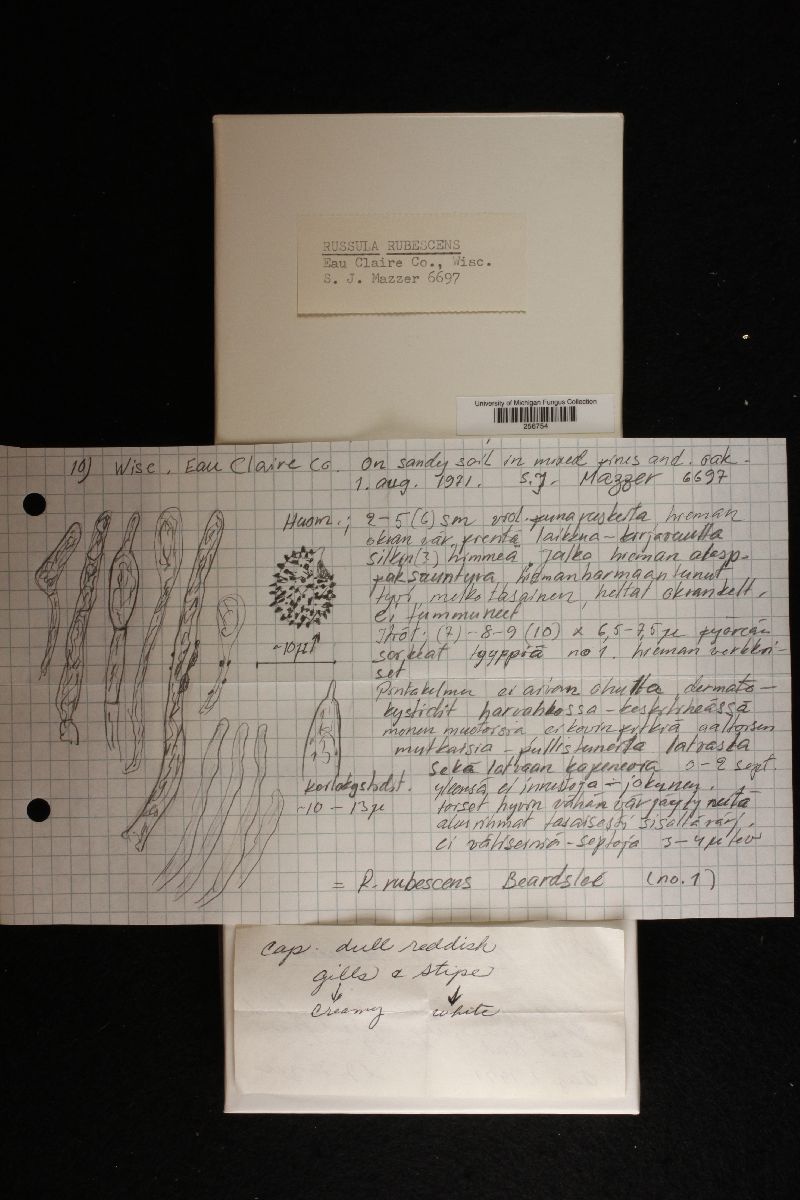 RUSSULA RUBESCENS
Eau Claire Co., Wisc.
S. J. Mazzer 6697
University of Michigan Fungus Collection
256754
10) Wisc. Eau Claire Co. On sandy soil in mixed pines and oak.
1. aug. 1971. S.J. Mazzer 6697
Huom.; 2-5 (6) sm viol. punaruskeita hieman
okran vär.
silkin(?) himmeä jalka hieman alasp-
hieman harmaantunut
tyvi, melko tasainen, heltat okrankelt.
ei tummuneet
Itiöt: (7) - 8-9 (10) x 6,5-7,5 µ pyöreän
soikeat tyyppiä no 1. hieman verkkoi-
set
~10µ
Pintakelmu ei aivan ohutta, dermato-
kystidit harvahkossa - keskitiheässä
monen muotoisia ei kovin pitkiä aaltoisen
mutkaisia - pullistuneita latvasta
sekä latvaan kapenevia 0-2 sept.
yleensä ei
hyvin vähän värjäytyneitä
alusrihmat tasaisesti
ei väliseiniä - septoja 3-4 µ lev
~10 - 13µ
= R. rubescens Beardslee (no. 1)
cap. dull reddish
gills & stipe
↓ ↓
creamy white